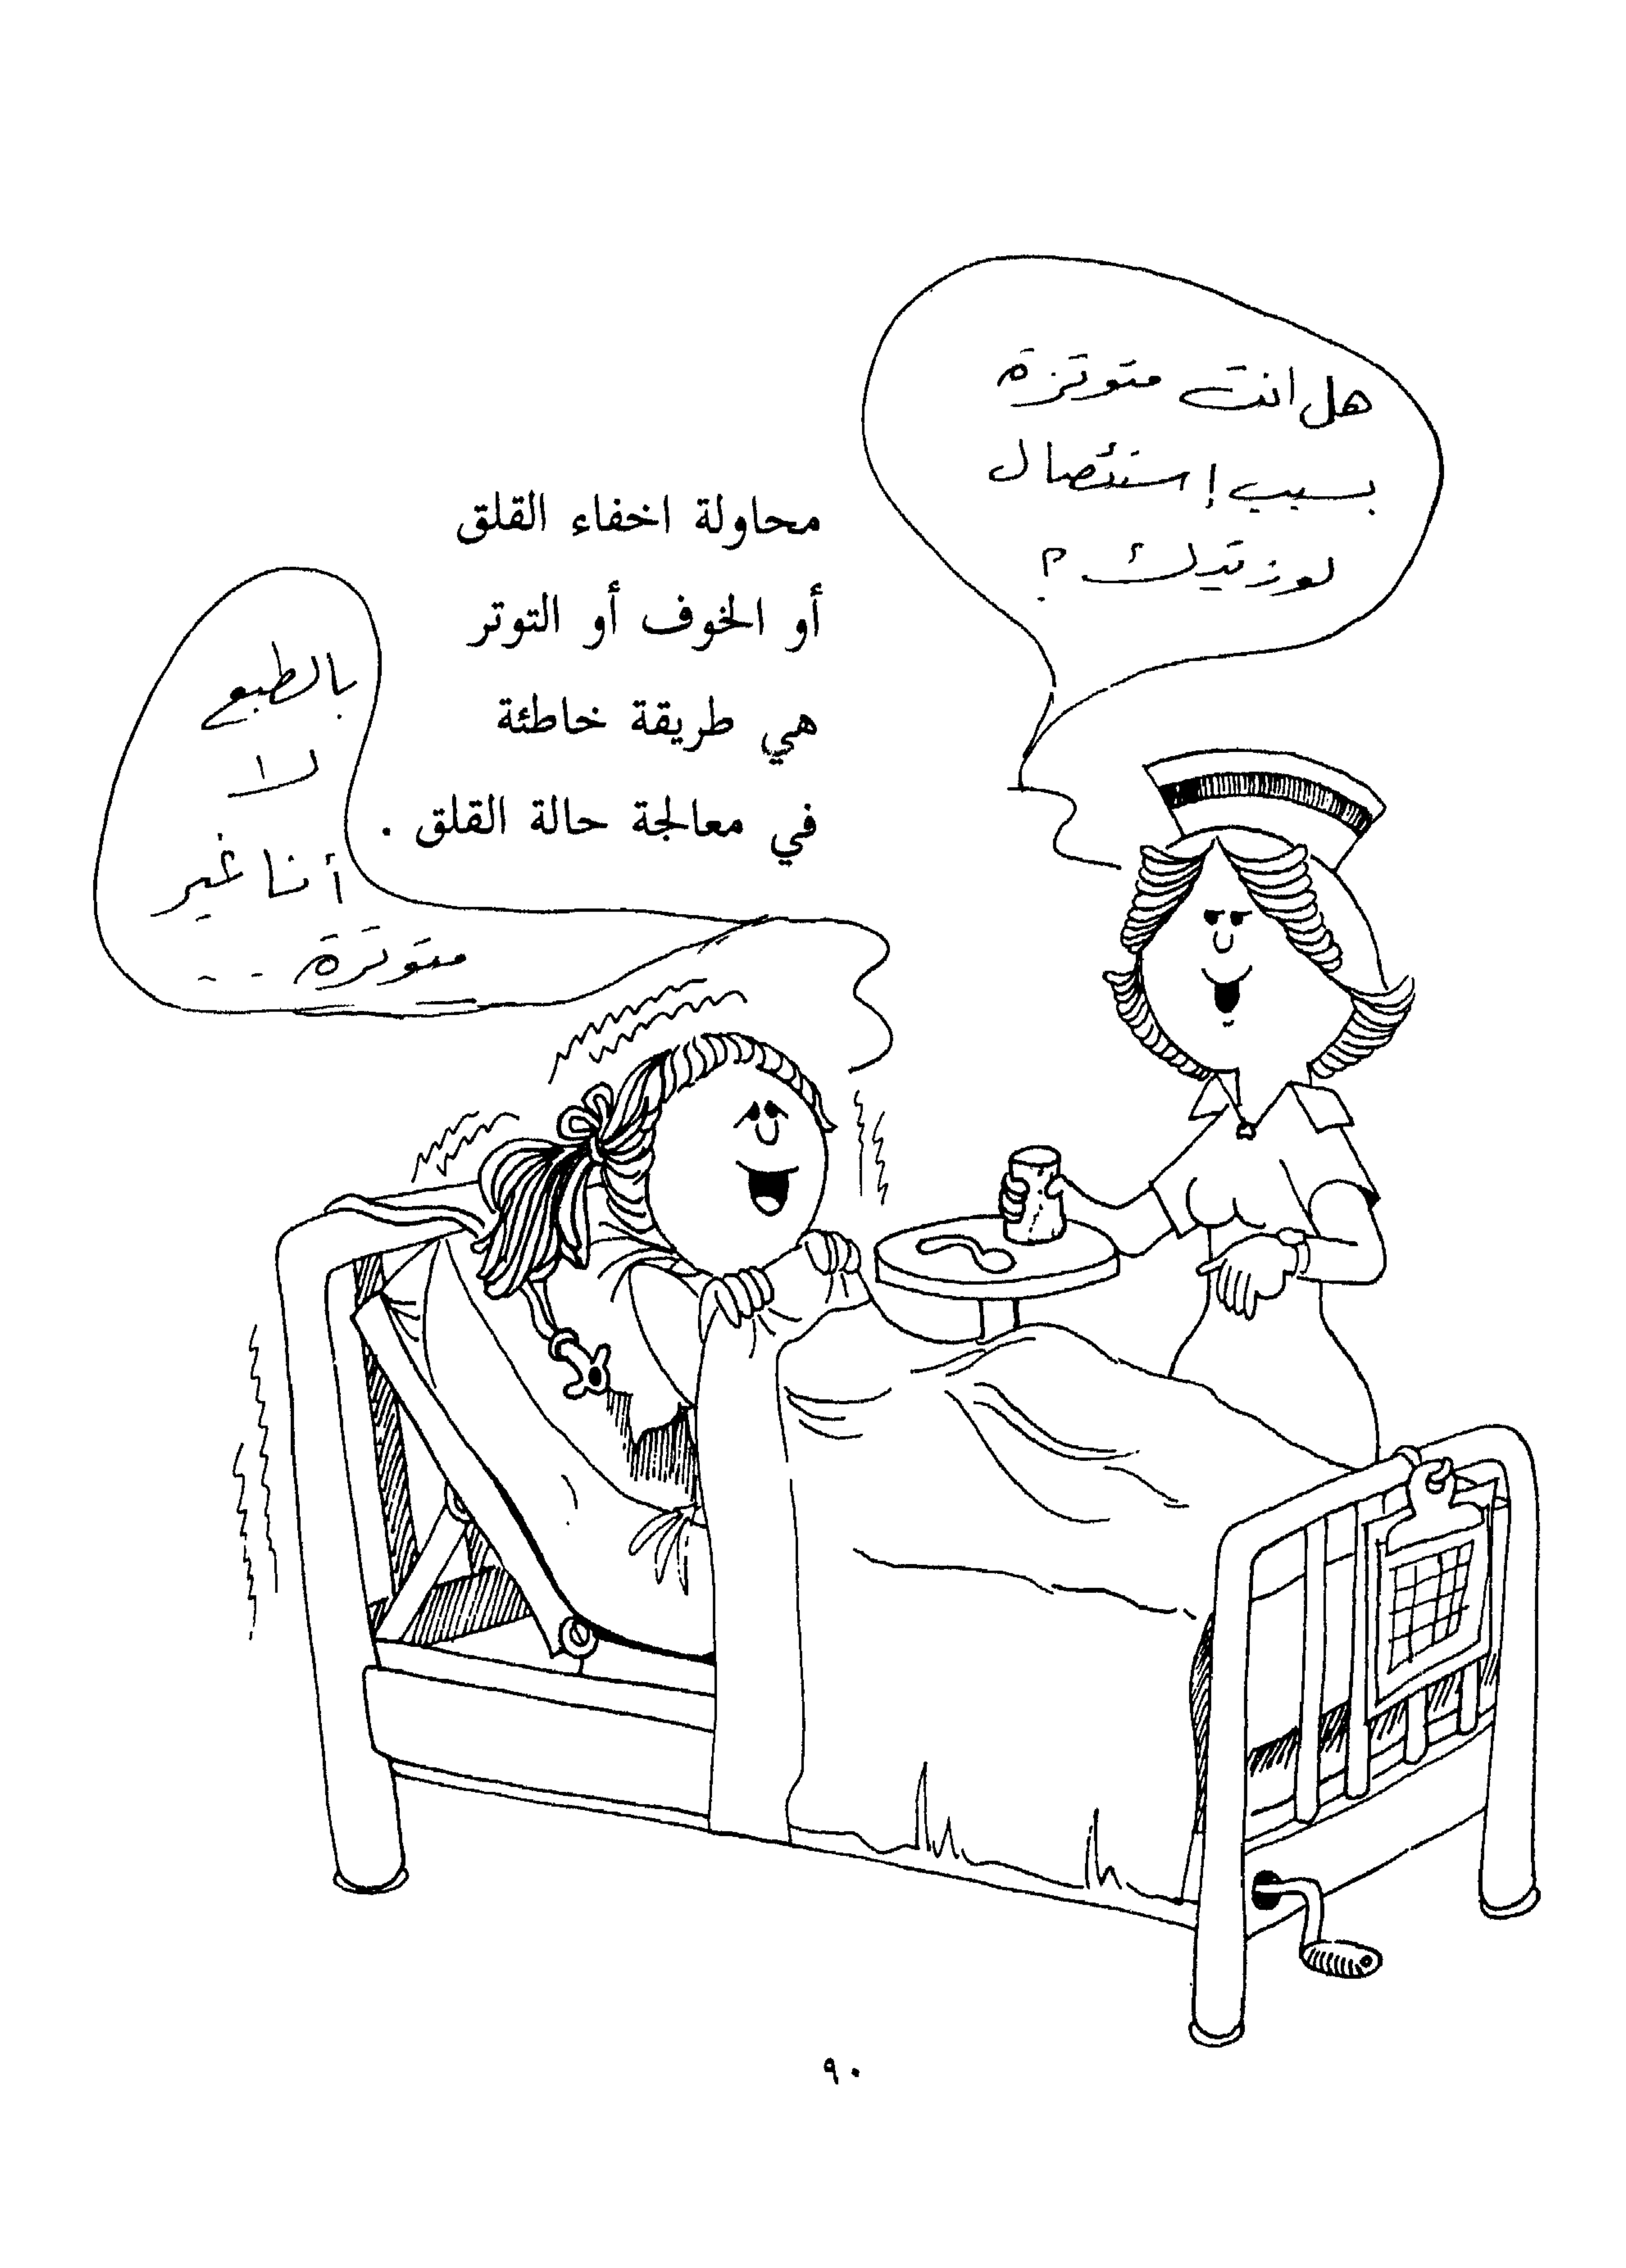 هل انت متوترة
بسبب إستئصال
لوزتيك ؟
محاولة اخفاء القلق
أو الخوف أو التوتر
هي طريقة خاطئة
في معالجة حالة القلق .
بالطبع
لا
أنا غير
متوترة - -
٩٠